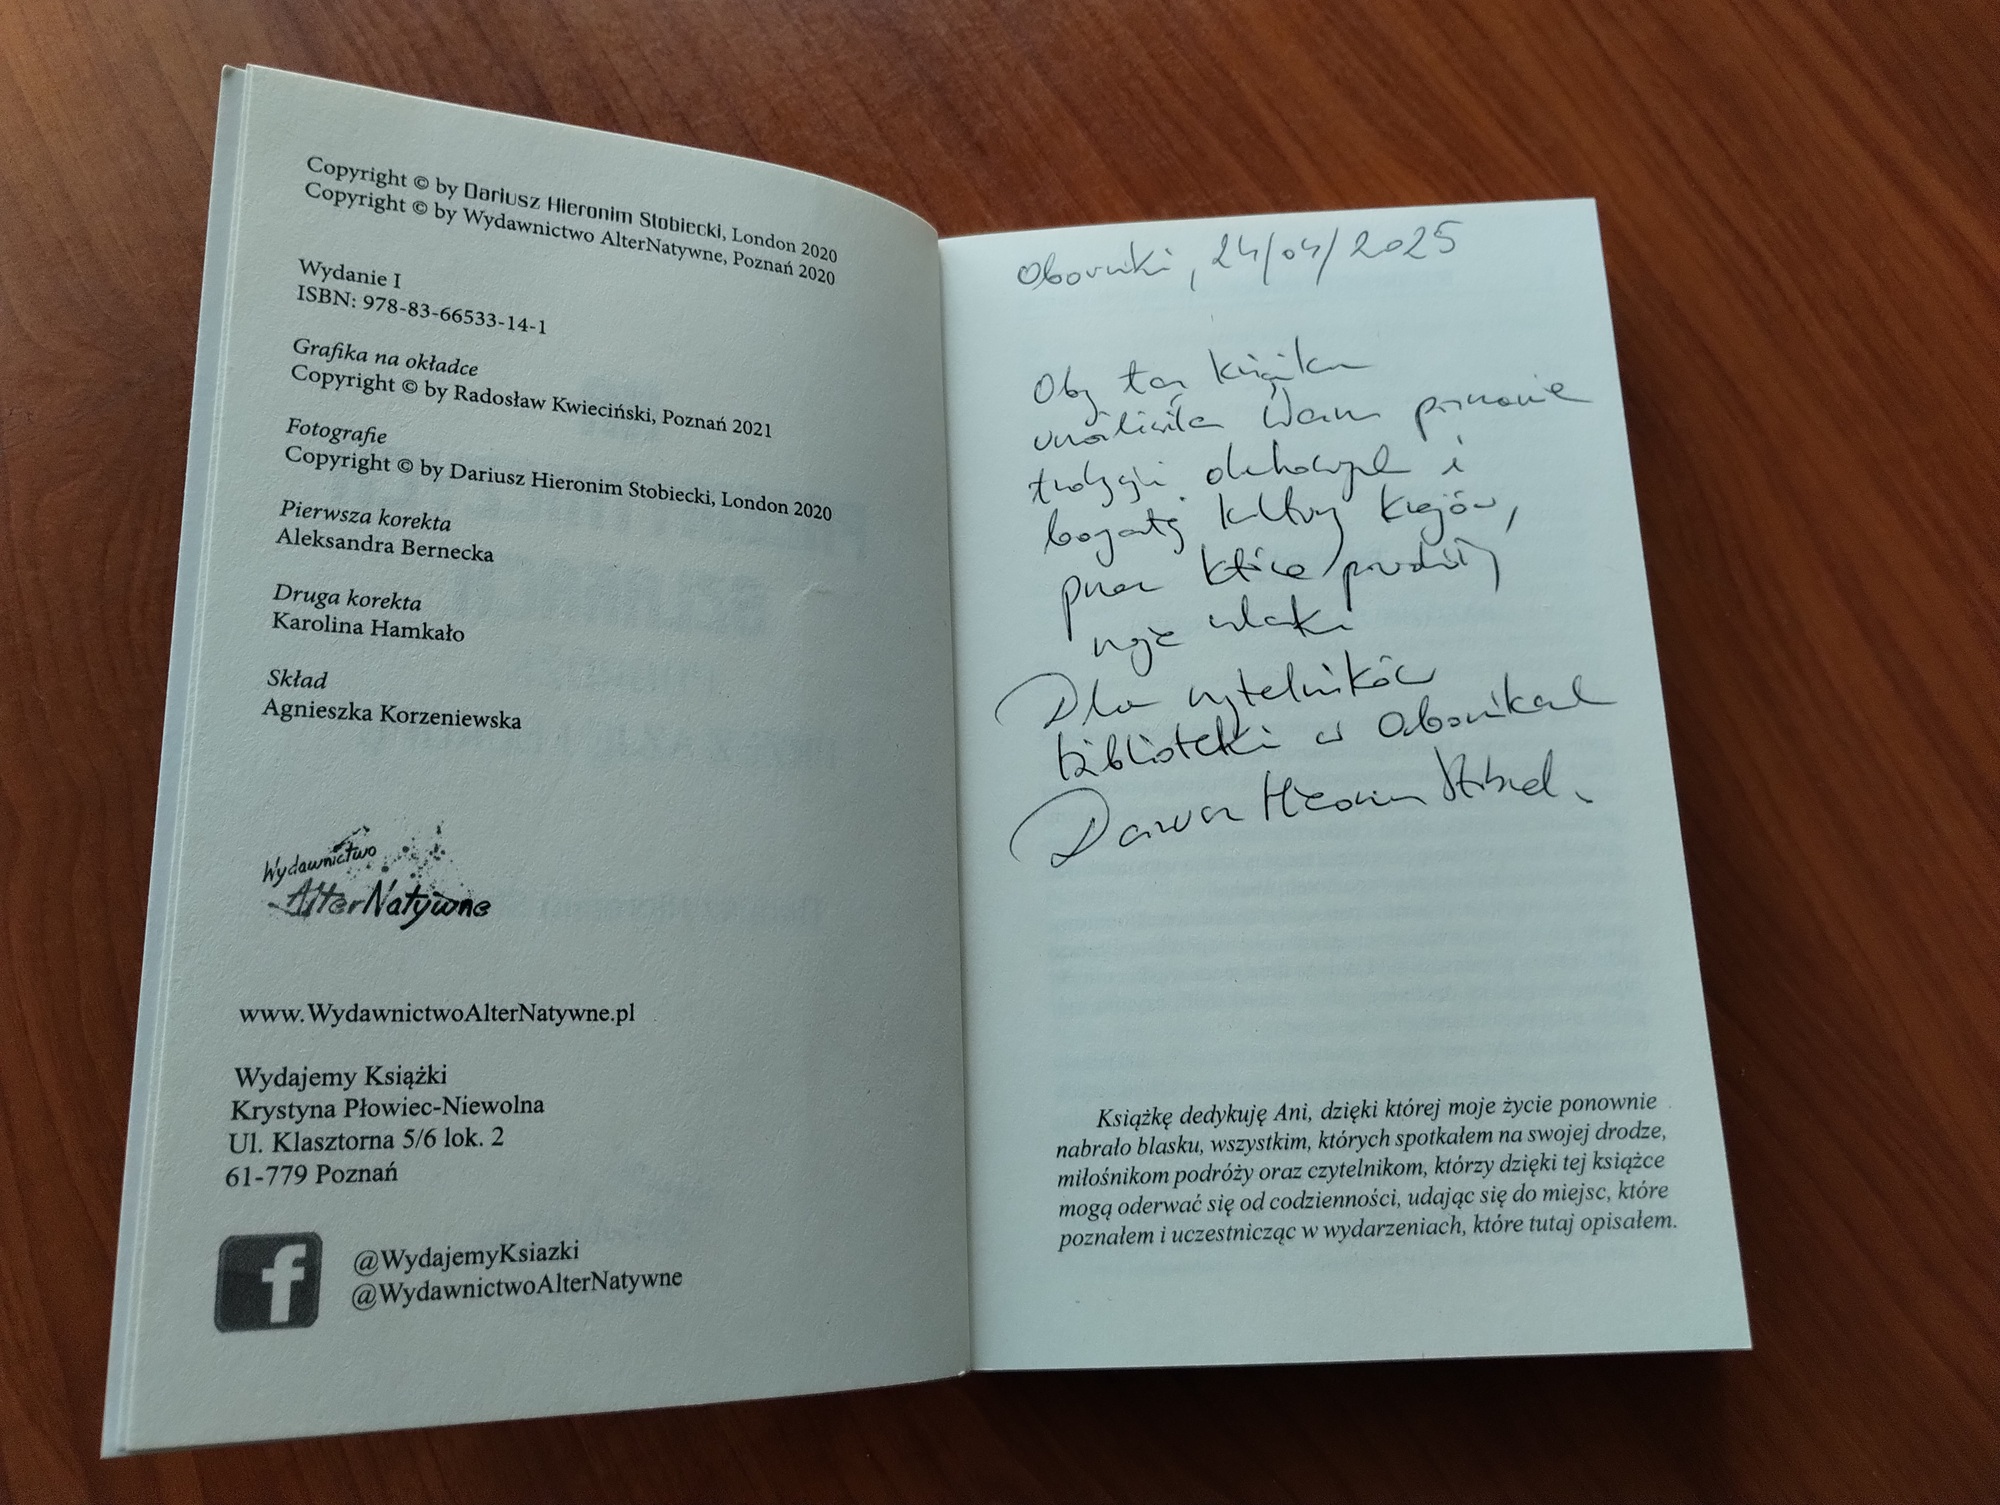 Copyright © by Dariusz Hieronim Stobiecki, London 2020
Copyright © by Wydawnictwo AlterNatywne, Poznań 2020
Wydanie I
ISBN: 978-83-66533-14-1
Grafika na okładce
Copyright © by Radosław Kwieciński, Poznań 2021
Fotografie
Copyright © by Dariusz Hieronim Stobiecki, London 2020
Pierwsza korekta
Aleksandra Bernecka
Druga korekta
Karolina Hamkało
Skład
Agnieszka Korzeniewska
Wydawnictwo
AlterNatywne
www.WydawnictwoAlterNatywne.pl
Wydajemy Książki
Krystyna Płowiec-Niewolna
Ul. Klasztorna 5/6 lok. 2
61-779 Poznań
f
@WydajemyKsiazki
@WydawnictwoAlterNatywne
Oborniki, 24/04/2025
Oby ta książka
umożliwiła Wam poznanie
tradycji duchowych i
bogatej kultury krajów,
przez które prowadziły
moje szlaki
Dla czytelników
biblioteki w Obornikach
Dariusz Hieronim Stobiecki
Książkę dedykuję Ani, dzięki której moje życie ponownie
nabrało blasku, wszystkim, których spotkałem na swojej drodze,
miłośnikom podróży oraz czytelnikom, którzy dzięki tej książce
mogą oderwać się od codzienności, udając się do miejsc, które
poznałem i uczestnicząc w wydarzeniach, które tutaj opisałem.